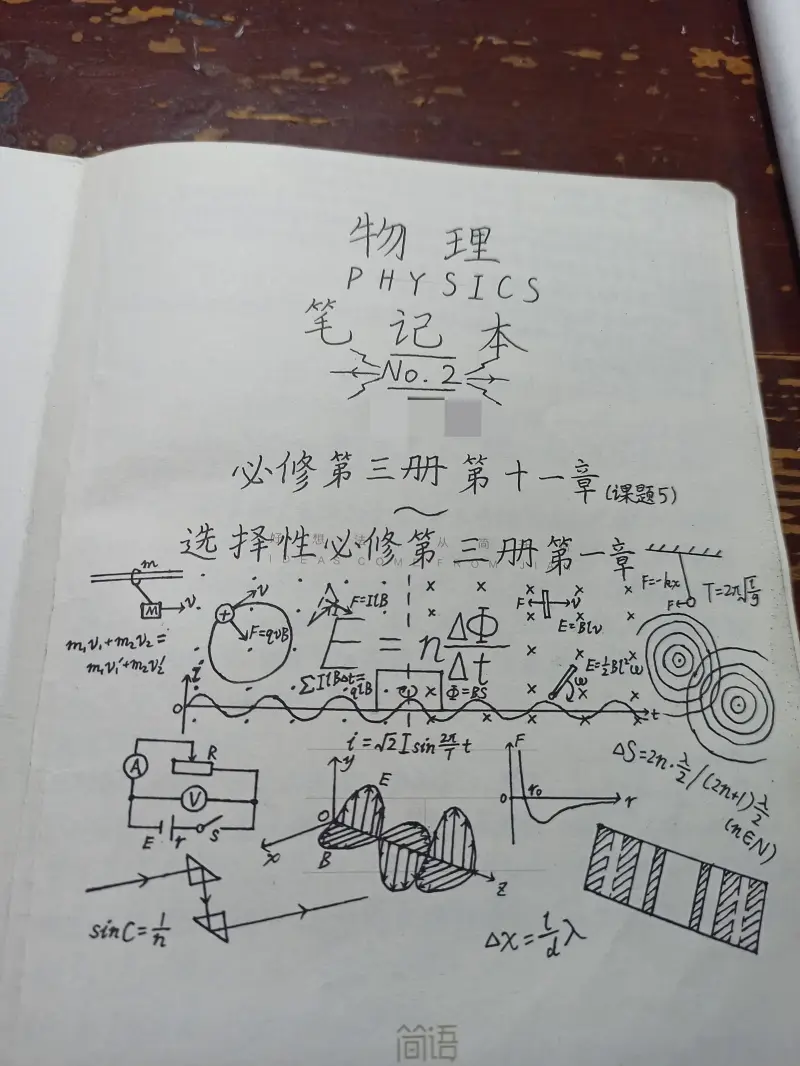 物理
PHYSICS
笔记本
No.2
必修第三册第十一章(课题5)
~
好想法 从简
选择性必修第三册第一章
IDEAS COME FROM JI
m
M v
m₁v₁+m₂v₂=
m₁v₁'+m₂v₂'
+ v
F=qvB
F=IlB
E=n ΔΦ/Δt
ΣIlBΔt=
qlB
ω
Φ=BS
F v
E=Blv
E=½Bl²ω
ω
F=-kx
F
T=2π√(l/g)
i
0
t
i=√2 I sin 2π/T t
ΔS=2n·λ/2 /(2n+1)λ/2
(n∈N)
A R
V
E r S
y
E
O
x
B
z
F
0 r₀ r
sinC=1/n
Δx=l/d λ
简语